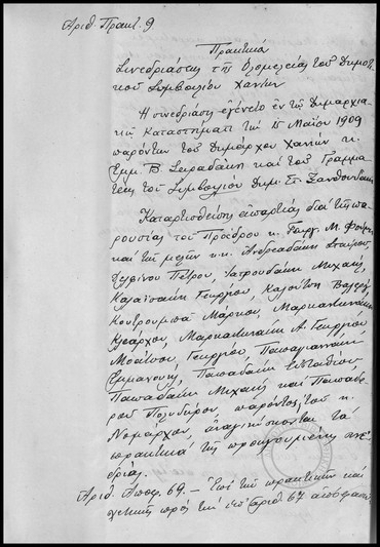 Αριθ. Πρακτ. 9
Πρακτικά
Συνεδριάσεως της Ολομελείας του Δημοτι-
κού Συμβουλίου Χανίων
Η συνεδρίασις εγένετο εν τω Δημαρχια-
κώ Καταστήματι την 15 Μαΐου 1909
παρόντων του Δημάρχου Χανίων κ.
Εμμ. Β. και του Γραμμα-
τέως του Συμβουλίου Δημ. Στ. Ξανθουδάκη
Καταρτισθείσης απαρτίας διά της πα-
ρουσίας του Προέδρου κ. Γεωργ. Μ.
και των μελών κ.κ. Ανδρεαδάκη Σταύρου,
Δελφίνου Πέτρου, Ιατρουδάκη Μιχαήλ,
Καλαϊσάκη Γεωργίου, Καλούτση Βαλερίου
Κουτρουμπά Μάρκου, Μαρκαντωνάκη
Κλεάρχου, Μαρκαντωνάκη Α. Γεωργίου
Γεωργίου, Παπαγιαννάκη
Εμμανουήλ, Παπαδάκη Ευσταθίου,
Παπαδάκη Μιχαήλ και Παπαδο-
Πολυδώρου, παρόντος του κ.
Νομάρχου, αναγινώσκονται τα
πρακτικά της προηγουμένης συνε-
δρίας.
Αριθ. Αποφ. 69. – Επί των πρακτικών και
σχετικώς προς την υπ' αριθ. 67 απόφασιν